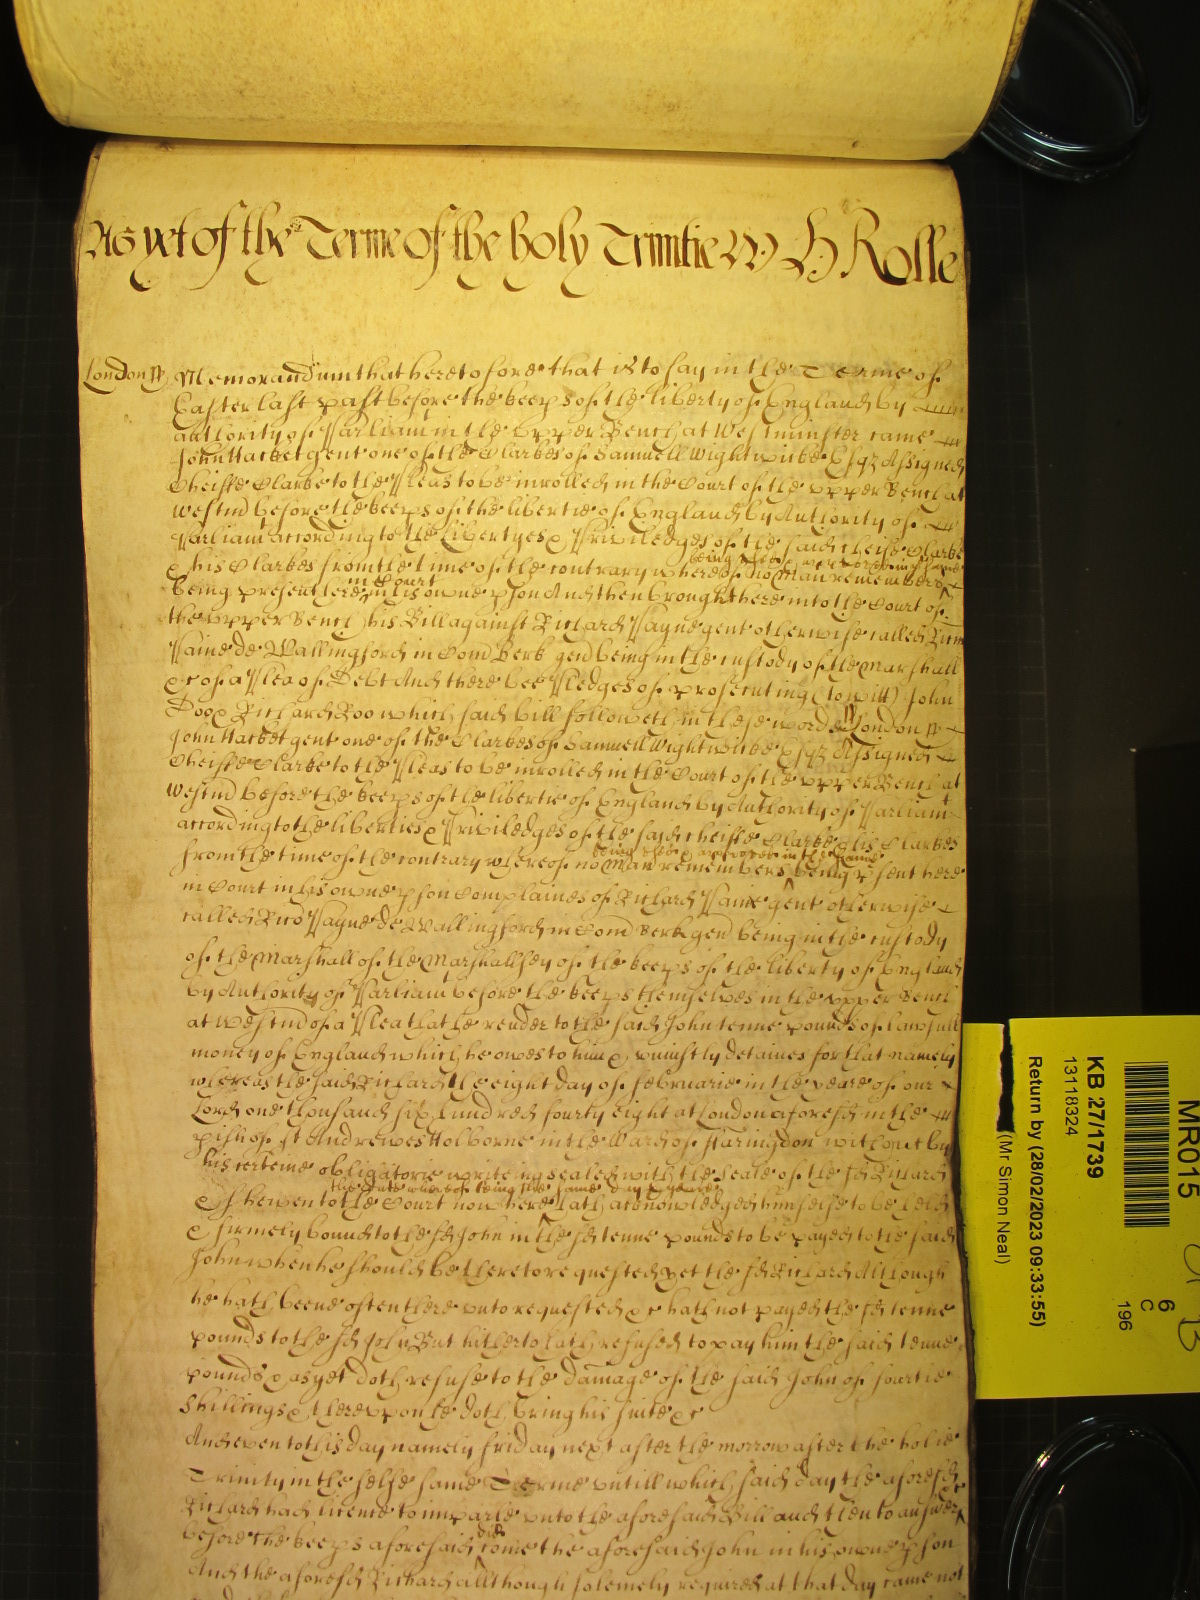 As yet of the Terme of the holy Trinitie W H Rolle
London ss Memorandum that heretofore that is to say in the Terme of
Easter last past before the keeps of the liberty of England by
authority of Parliam in the Upper Bench at Westminster came
John Hacket gent one of the Clarkes of Samuell Wightwicke Esqz Assigned
Cheiffe Clarke to the Pleas to be inrolled in the Court of the upper Bench at
Westmd before the keeps of the libertie of England by Authority of
Parliam according to the Libertyes & Priviledges of the said cheife Clarke
& his Clarkes from the time of the contrary whereof no Man remembers
being used & approved in the same
being present here in Court in his owne pson And then brought here into the Court of
the upper Bench his Bill against Richard Payne gent otherwise called Ricm
Paine de Wallingford in Com Berk gen being in the custody of the Marshall
&c of a Plea of Debt And there bee Pledges of prosecuting (to witt) John
Doo & Richard Roo which said bill followeth in these words London ss
John Hacket gent one of the Clarkes of Samuell Wightwicke Esqz Assigned
Cheiffe Clarke to the Pleas to be inrolled in the Court of the upper Bench at
Westmd before the keeps of the libertie of England by Authority of Parliam
according to the liberties & Priviledges of the said cheiffe Clarke & his Clarkes
from the time of the contrary whereof no Man remembers being psent here
being used & approved in the same
in Court in his owne pson Complaines of Richard Paine gent otherwise
called Ricd Payne de Wallingford in Com Berk gen being in the custody
of the Marshall of the Marshallsey of the keeps of the liberty of England
by Authority of Parliam before the keeps themselves in the upper Bench
at Westmd of a Plea that he render to the said John tenne pounds of lawfull
money of England which he owes to him & uniustly detaines for that namely
whereas the said Richard the eight day of februarie in the yeare of our
Lord one thousand six hundred fourty eight at London aforesd in the
pish of St Andrewes Holborne in the Ward of Faringdon without by
his certeine obligatorie writeing sealed with the Seale of the sd Richard
the date whereof being the same day & yeare
& shewen to the Court now here hath acknowledged himselfe to be held
& firmely bound to the sd John in the sd tenne pounds to be payed to the said
John when he should be thereto requested yet the sd Richard Although
he hath beene often thereunto requested &c hath not payed the sd tenne
pounds to the sd John But hitherto hath refused to pay him the said tenne
pounds & as yet doth refuse to the damage of the said John of fourtie
Shillings & thereupon he doth bring his suite &c
And even to this day namely friday next after the morrow after the holie
Trinity in the selfe same Terme untill which said day the aforesd
Richard had licence to imparle unto the aforesaid Bill and then to answer &c
before the keeps aforesaid did come the aforesaid John in his owne pson
And the aforesd Richard allthough solemely required at that day came not
MR015
KB 27/1739
13118324
Return by (28/02/2023 09:33:55)
(Mr Simon Neal)
6
C
196